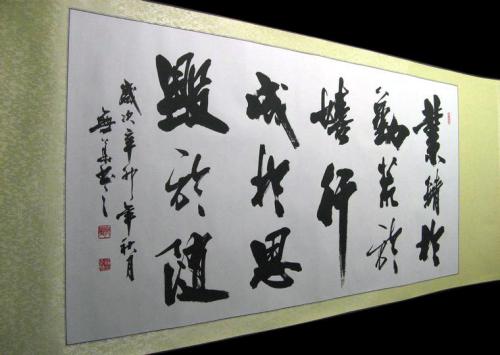 業精於
勤荒於
嬉行
成於思
毀於隨
歲次辛卯年秋月
無書之